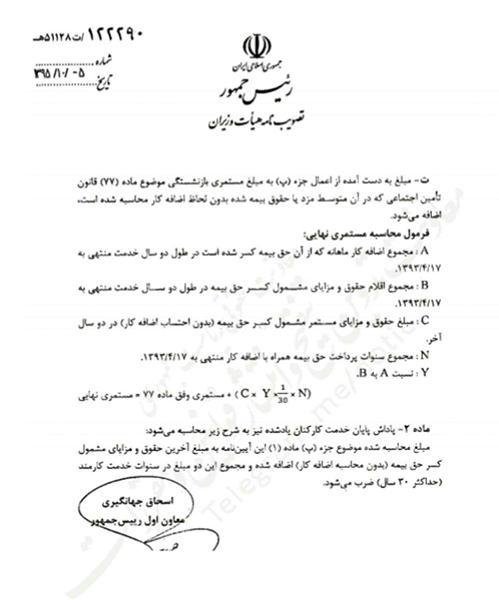 ۱۲۲۲۹۰/ت۵۱۱۲۸هـ
شماره
۱۳۹۵/۱۰/۰۵
تاریخ
جمهوری اسلامی ایران
رئیس جمهور
تصویب نامه هیأت وزیران
ت- مبلغ به دست آمده از اعمال جزء (پ) به مبلغ مستمری بازنشستگی موضوع ماده (۷۷) قانون
تأمین اجتماعی که در آن متوسط مزد یا حقوق بیمه شده بدون لحاظ اضافه کار محاسبه شده است،
اضافه می‌شود.
فرمول محاسبه مستمری نهایی:
A : مجموع اضافه کار ماهانه که از آن حق بیمه کسر شده است در طول دو سال خدمت منتهی به
۱۳۹۳/۴/۱۷.
B : مجموع اقلام حقوق و مزایای مشمول کسر حق بیمه در طول دو سال خدمت منتهی به
۱۳۹۳/۴/۱۷.
C : مبلغ حقوق و مزایای مستمر مشمول کسر حق بیمه (بدون احتساب اضافه کار) در دو سال
آخر.
N : مجموع سنوات پرداخت حق بیمه همراه با اضافه کار منتهی به ۱۳۹۳/۴/۱۷.
Y : نسبت A به B.
(C × Y × 1/30 × N) + مستمری وفق ماده ۷۷ = مستمری نهایی
ماده ۲- پاداش پایان خدمت کارکنان یادشده نیز به شرح زیر محاسبه می‌شود:
مبلغ محاسبه شده موضوع جزء (پ) ماده (۱) این آیین‌نامه به مبلغ آخرین حقوق و مزایای مشمول
کسر حق بیمه (بدون محاسبه اضافه کار) اضافه شده و مجموع این دو مبلغ در سنوات خدمت کارمند
(حداکثر ۳۰ سال) ضرب می‌شود.
اسحاق جهانگیری
معاون اول رییس‌جمهور